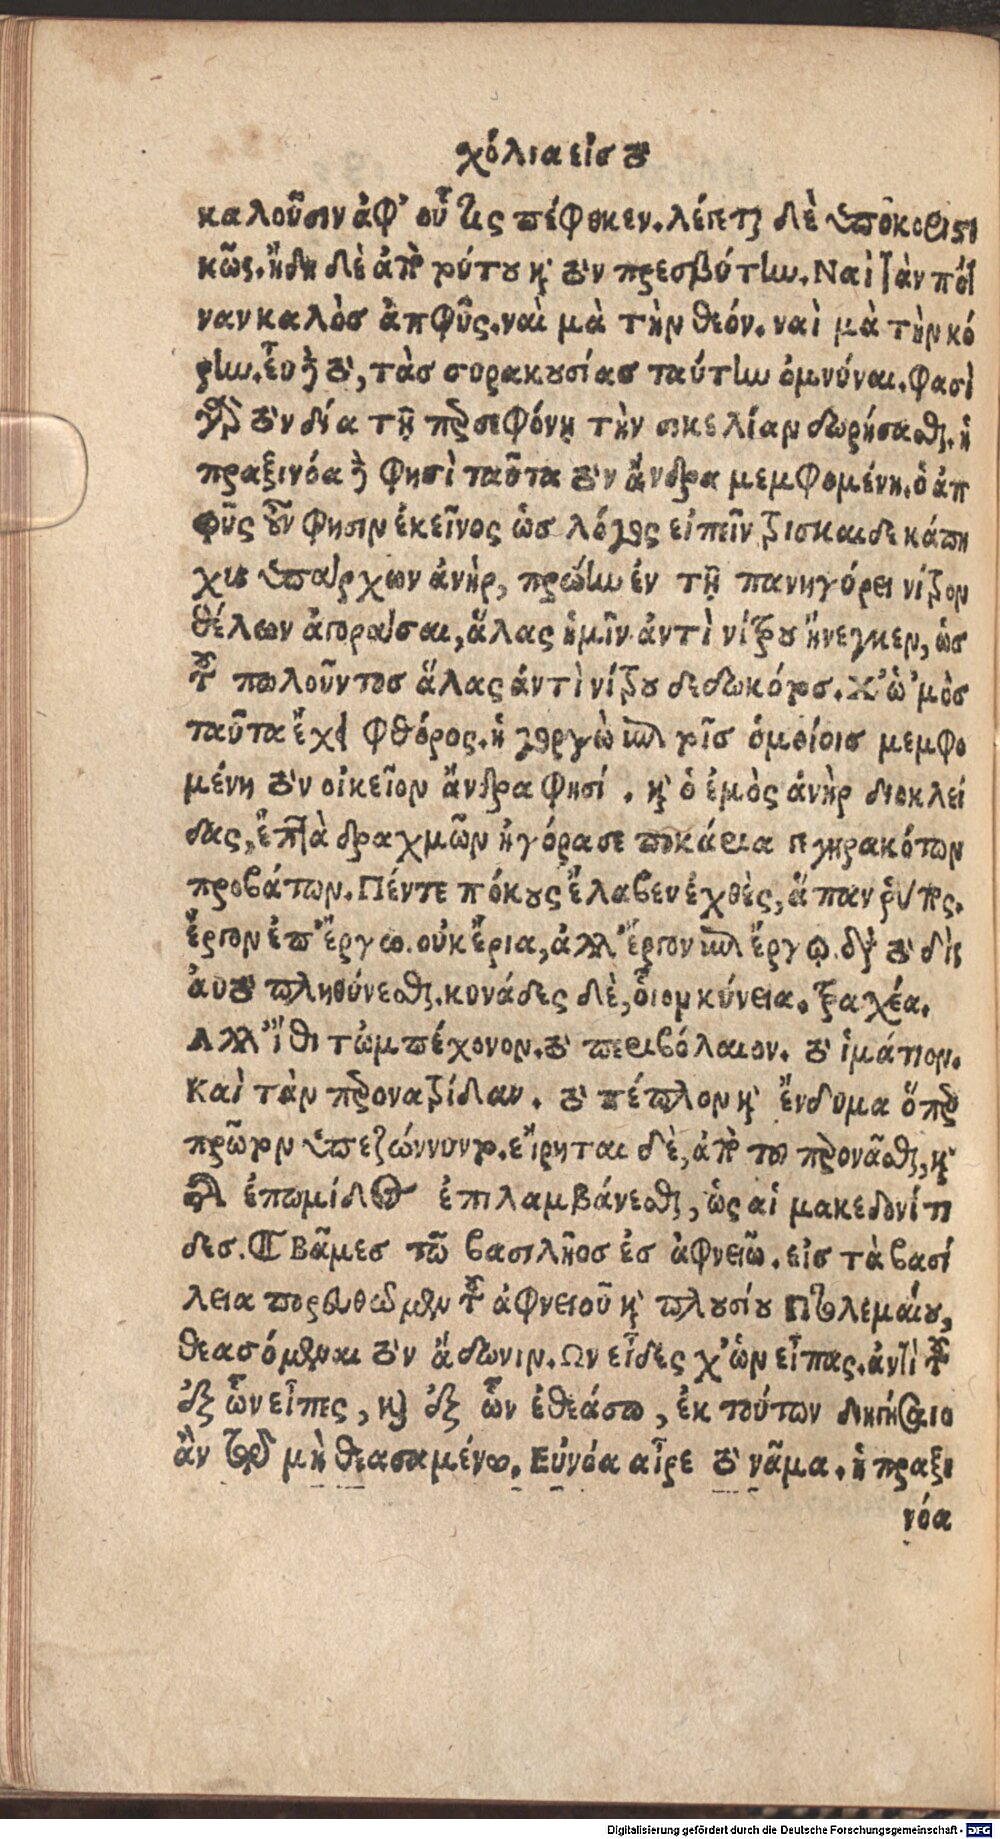 χόλια εἰσ τὸ
καλοῦσιν ἀφ' οὗ τις πέφυκεν. λέγεται δὲ ὑποκοριστι
κῶς. ἤδη δὲ ἀπὸ τούτου καὶ τὸν πρεσβύτην. Ναὶ τὰν πότ
ναν καλὸσ ἀπφῦς. ναὶ μὰ τὴν θεόν. ναὶ μὰ τὴν κό
ρην. ἔθος δὲ τὸ, τὰσ συρακουσίασ ταύτην ὀμνύναι. φασὶ
γὰρ τὸν δία τῇ περσεφόνῃ τὴν σικελίαν δωρήσασθαι. ἡ
πραξινόα δὲ φησὶ ταῦτα τὸν ἄνδρα μεμφομένη. ὁ ἀπ
φῦς οὖν φησιν ἐκεῖνος ὡσ λόγος εἰπεῖν τρισκαιδεκάπη
χυς ὑπάρχων ἀνὴρ, πρώην ἐν τῇ πανηγύρει νίτρον
θέλων ἀγοράσαι, ἅλας ἡμῖν ἀντὶ νίτρου ἤνεγκεν, ὡσ
τοῦ πωλοῦντοσ ἅλας ἀντὶ νίτρου δεδωκότοσ. Χ' ὠ' μὸσ
ταῦτα ἔχει φθόρος. ἡ γοργὼ ἐπὶ τοῖσ ὁμοίοισ μεμφο
μένη τὸν οἰκεῖον ἄνδρα φησί. καὶ ὁ ἐμὸς ἀνὴρ διοκλεί
δας, ἑπτὰ δραχμῶν ἠγόρασε ποκάρια γεγηρακότων
προβάτων. Πέντε πόκους ἔλαβεν ἐχθὲς, ἅπαν ῥύπος.
ἔργον ἐπ' ἔργω. οὐκ ἔρια, ἀλλ' ἔργον ἐπὶ ἔργῳ. διὰ τὸ δὶς
ἀυτὸ πληθύνεσθαι. κυνάδες δὲ, οἷον κύνεια. τραχέα.
Αλλ' ἴθι τὠμπέχονον. τὸ περιβόλαιον. τὸ ἱμάτιον.
Καὶ τὰν περονατρίδαν. τὸ πέπλον καὶ ἔνδυμα ὅπερ
πρῶτον ὑπεζώννυντο. εἴρηται δὲ, ἀπὸ τοῦ περονᾶσθαι, καὶ
διὰ ἐπωμίδος ἐπιλαμβάνεσθαι, ὡς αἱ μακεδονίτι
δεσ. ¶ Βᾶμεσ τῶ βασιλῆοσ ἐσ ἀφνειῶ. εἰσ τὰ βασί
λεια πορευθῶμεν τοῦ ἀφνειοῦ καὶ πλουσίου Πτολεμαίου,
θεασόμεναι τὸν ἄδωνιν. Ων εἶδες χ' ὧν εἶπας. ἀντὶ τοῦ
ἐξ ὧν εἶπες, καὶ ἐξ ὧν ἐθεάσω, ἐκ τούτων διηγήσαιο
ἂν τῷ μὴ θεασαμένω. Εὐνόα αἶρε τὸ νᾶμα. ἡ πραξι
νόα
Digitalisierung gefördert durch die Deutsche Forschungsgemeinschaft - DFG